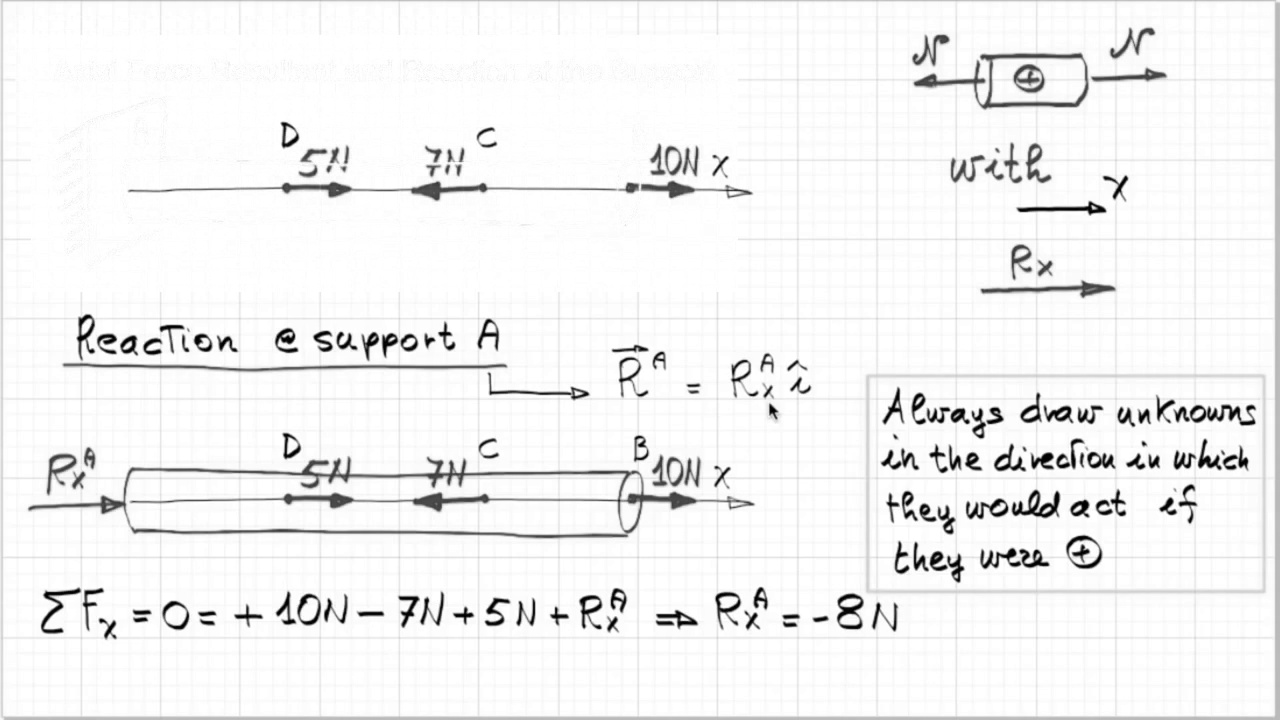 Axial Force Resultant and Reaction at the Support
N N
D 5N 7N C 10N x
with
x
Rx
Reaction @ support A
R^A = Rx^A î
Always draw unknowns
in the direction in which
they would act if
they were ⊕
Rx^A D 5N 7N C B 10N x
ΣFx = 0 = + 10N − 7N + 5N + Rx^A ⇒ Rx^A = -8N